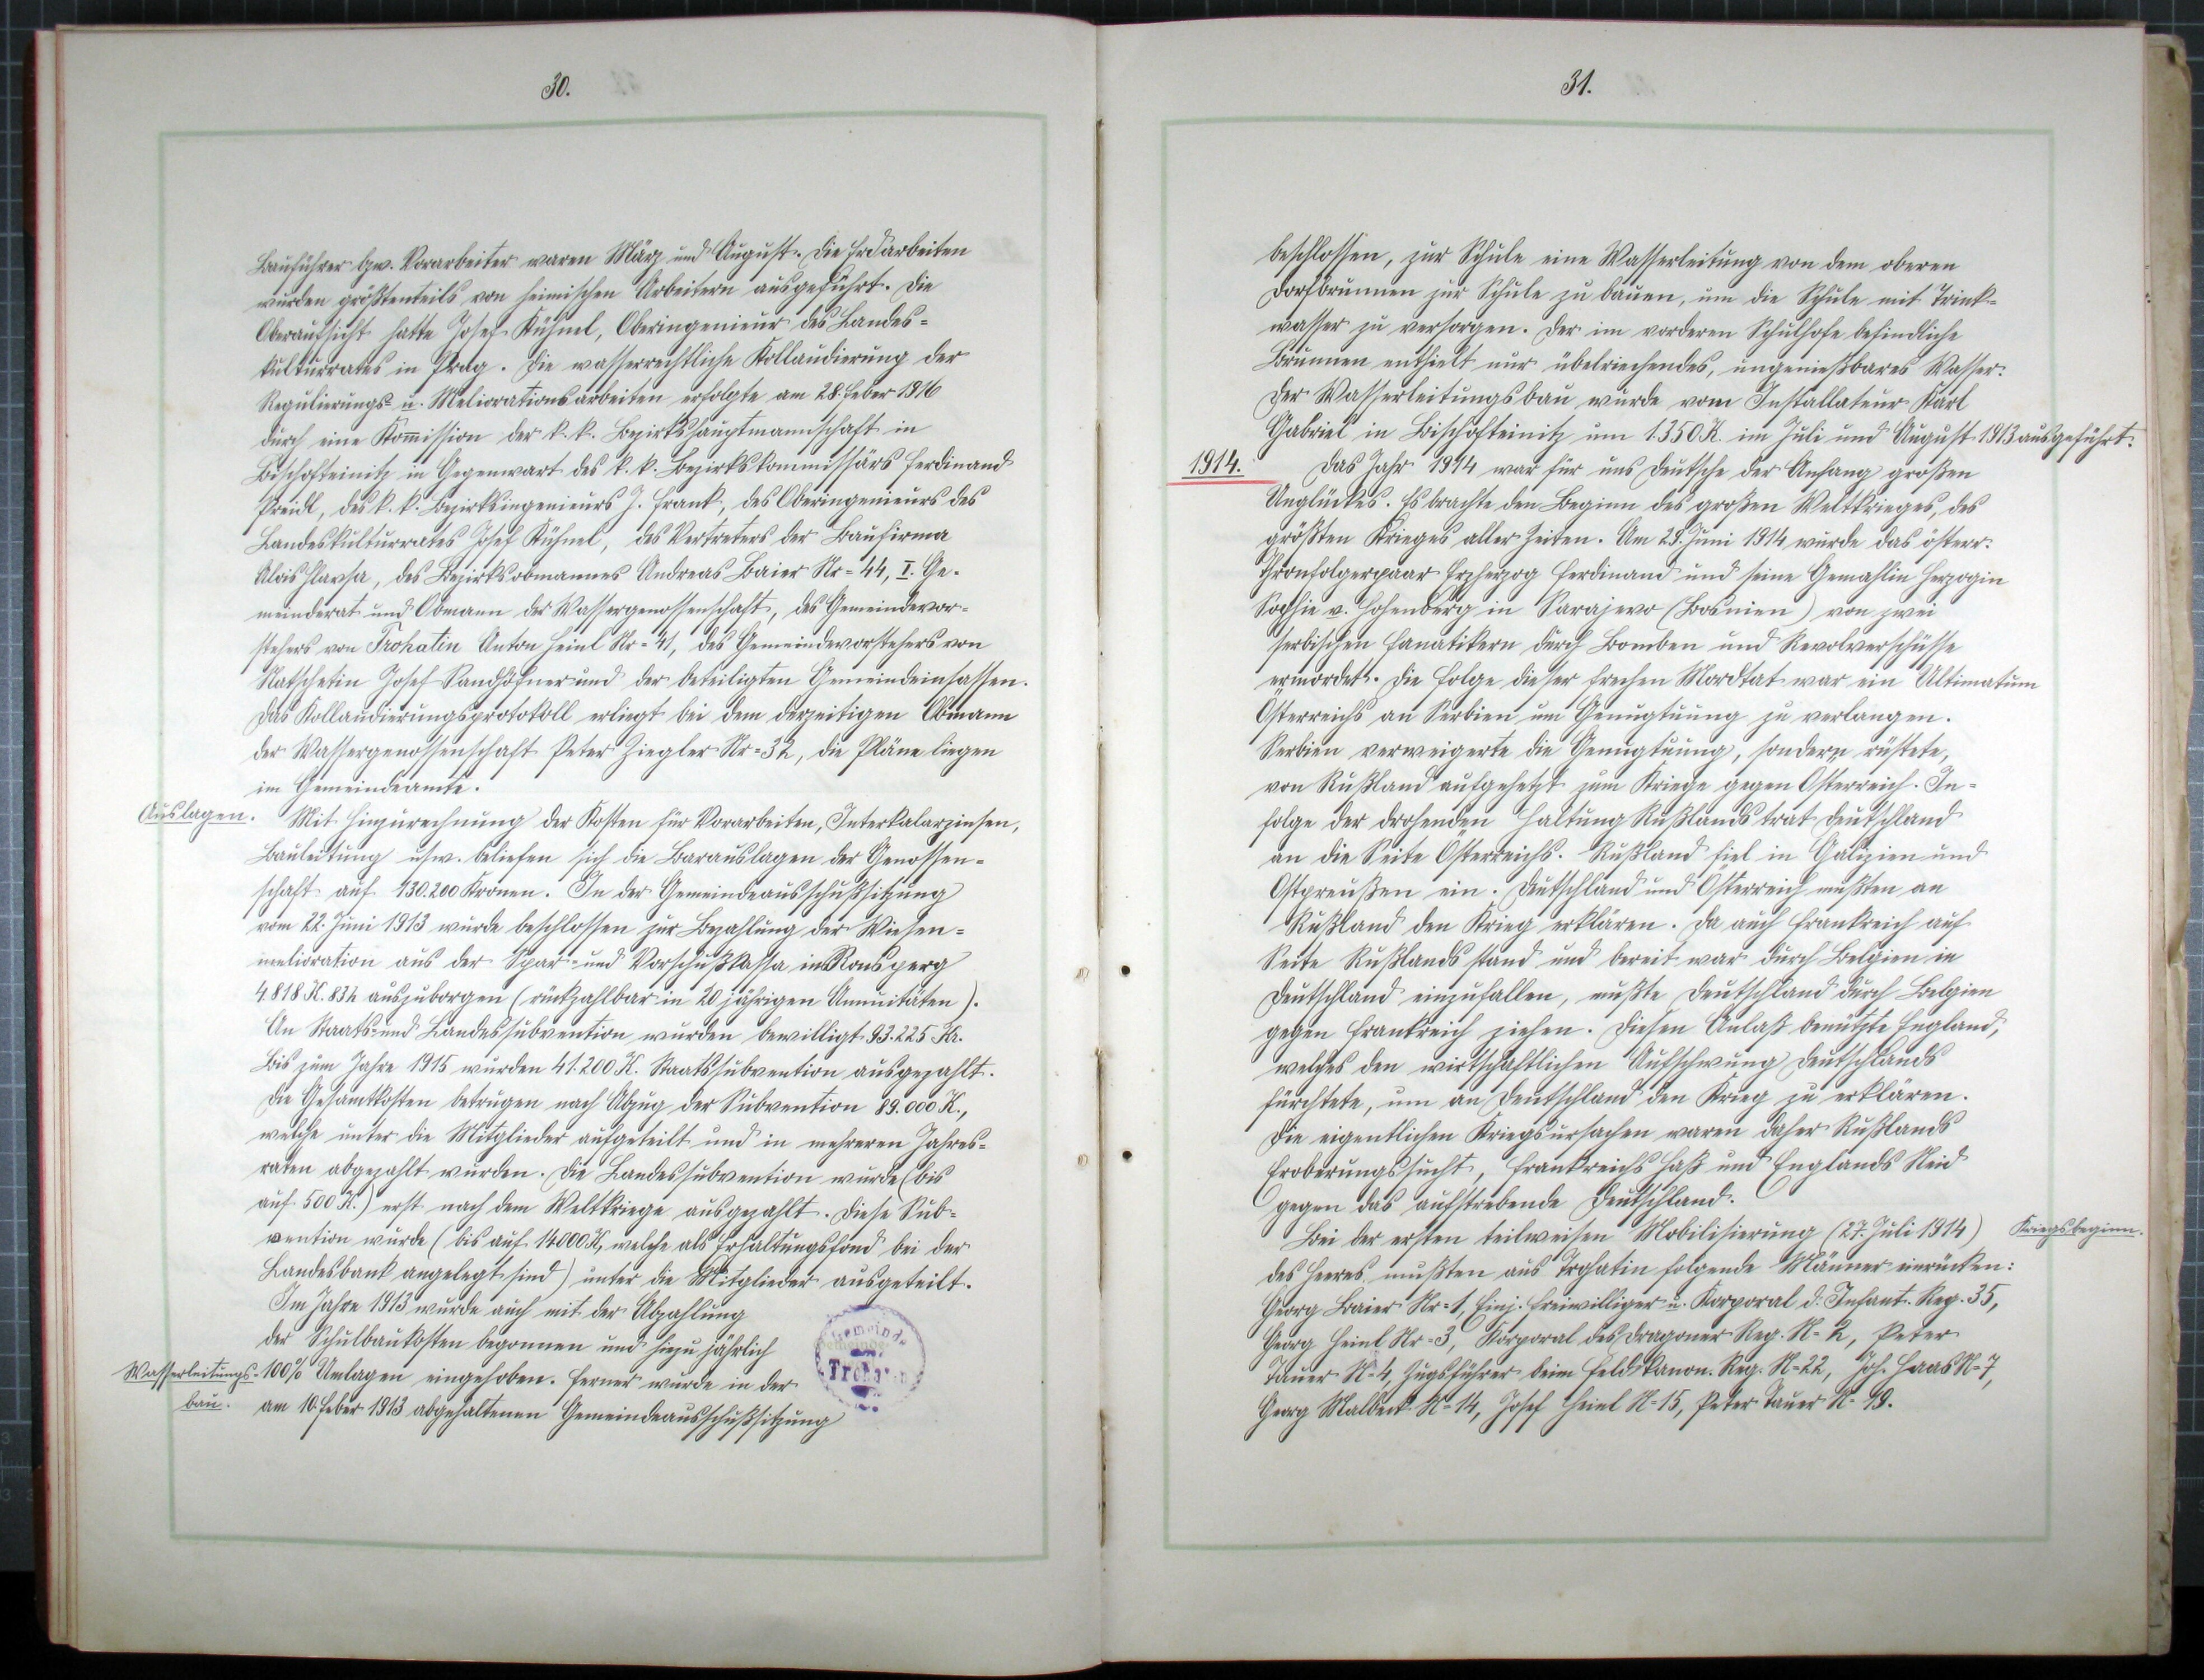 30.
Bauführer bzw. Vorarbeiter waren März und August. Die Erdarbeiten
wurden größtenteils von heimischen Arbeitern ausgeführt. Die
Oberaufsicht hatte Josef Kühnel, Oberingenieur des Landes=
kulturrates in Prag. Die wasserrechtliche Kollaudierung der
Regulierungs= u. Meliorationsarbeiten erfolgte am 28. Feber 1916
durch eine Kom̅ission der k. k. Bezirkshauptmannschaft in
Bischofteinitz in Gegenwart des k. k. Bezirkskommissärs Ferdinand
Preidl, des k. k. Bezirksingenieurs J. Frank, des Oberingenieurs des
Landeskulturrates Josef Kühnel, des Vertreters der Baufirma
Alois Hlavsa, des Bezirksobmannes Andreas Baier Nr=44, I. Ge-
meinderat und Obmann der Wassergenossenschaft, des Gemeindevor=
stehers von Trohatin Anton Heinl Nr=41, des Gemeindevorstehers von
Natschetin Josef Sandhöfner und der beteiligten Gemeindeinsassen.
Das Kollaudierungsprotokoll erliegt bei dem derzeitigen Obmann
der Wassergenossenschaft Peter Ziegler Nr=32, die Pläne liegen
im Gemeindeamte.
Auslagen. Mit Hinzurechnung der Kosten für Vorarbeiten, Interkalarzinsen,
Bauleitung usw. beliefen sich die Barauslagen der Genossen=
schaft auf 130.200 Kronen. In der Gemeindeausschußsitzung
vom 22. Juni 1913 wurde beschlossen zur Bezahlung der Wiesen=
melioration aus der Spar= und Vorschußkassa in Ronsperg
4.818 K. 83 h auszuborgen (rückzahlbar in 20 jährigen Annuitäten).
An Staats= und Landessubvention wurden bewilligt 93.225 Kr.
Bis zum Jahre 1915 wurden 41.200 K. Staatssubvention ausgezahlt.
Die Gesamtkosten betrugen nach Abzug der Subvention 89.000 K.,
welche unter die Mitglieder aufgeteilt und in mehreren Jahres=
raten abgezahlt wurden. Die Landessubvention wurde (bis
auf 500 K.) erst nach dem Weltkriege ausgezahlt. Diese Sub=
vention wurde (bis auf 14000 K, welche als Erhaltungsfond bei der
Landesbank angelegt sind) unter die Mitglieder ausgeteilt.
Im Jahre 1913 wurde auch mit der Abzahlung
der Schulbaukosten begonnen und hiezu jährlich
Wasserleitungs= 100% Umlagen eingehoben. Ferner wurde in der
bau. am 10. Feber 1913 abgehaltenen Gemeindeausschußsitzung
Gemeinde
31.
beschlossen, zur Schule eine Wasserleitung von dem oberen
Dorfbrunnen zur Schule zu bauen, um die Schule mit Trink=
wasser zu versorgen. Der im vorderen Schulhofe befindliche
Brunnen enthielt nur übelriechendes, ungenießbares Wasser.
Der Wasserleitungsbau wurde vom Installateur Karl
Gabriel in Bischofteinitz um 1.350 K. im Juli und August 1913 ausgeführt.
1914. Das Jahr 1914 war für uns Deutsche der Anfang großen
Unglückes. Es brachte den Beginn des großen Weltkrieges, des
größten Krieges aller Zeiten. Am 28. Juni 1914 wurde das österr.
Thronfolgerpaar Erzherzog Ferdinand und seine Gemahlin Herzogin
Sophie v. Hohenberg in Sarajevo (Bosnien) von zwei
serbischen Fanatikern durch Bomben und Revolverschüsse
ermordet. Die Folge dieser frechen Mordtat war ein Ultimatum
Österreichs an Serbien um Genugtuung zu verlangen.
Serbien verweigerte die Genugtuung, sondern rüstete,
von Rußland aufgehetzt zum Kriege gegen Österreich. In=
folge der drohenden Haltung Rußlands trat Deutschland
an die Seite Österreichs. Rußland fiel in Galizien und
Ostpreußen ein. Deutschland und Österreich mußten an
Rußland den Krieg erklären. Da auch Frankreich auf
Seite Rußlands stand und bereit war durch Belgien in
Deutschland einzufallen, mußte Deutschland durch Belgien
gegen Frankreich ziehen. Diesen Anlaß benützte England,
welches den wirtschaftlichen Aufschwung Deutschlands
fürchtete, um an Deutschland den Krieg zu erklären.
Die eigentlichen Kriegsursachen waren daher Rußlands
Eroberungssucht, Frankreichs Haß und Englands Neid
gegen das aufstrebende Deutschland.
Bei der ersten teilweisen Mobilisierung (27. Juli 1914) Kriegsbeginn.
des Heeres mußten aus Trohatin folgende Männer einrücken:
Georg Baier Nr=1, Einj. Freiwilliger u. Korporal d. Infant. Reg. 35,
Georg Heinl Nr=3, Korporal des Dragoner Reg. N=2, Peter
Tauer N=4, Zugsführer beim Feldkanon. Reg. N=22, Joh. Haas N=7,
Georg N=14, Josef Heinl N=15, Peter Tauer N=19.